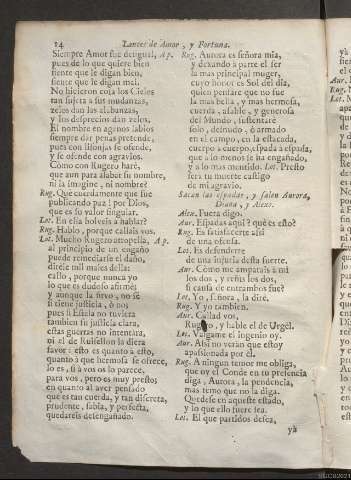 14 Lances de Amor, y Fortuna.
Siempre Amor fue desigual, Ap.
pues de lo que quiere bien
siente que le digan bien,
siente que le digan mal.
No hicieron cosa los Cielos
tan sujeta a sus mudanzas,
zelos dan las alabanzas,
y los desprecios dan zelos.
El nombre en agenos labios
siempre dàr penas pretende,
pues con lisonjas se ofende,
y se ofende con agravios.
Còmo con Rugero harè,
que aun para alabar su nombre,
ni la imagine, ni nombre?
Rug. Que cuerdamente que fue
publicando paz! por Dios,
que es su valor singular.
Lot. En ella bolveis à hablar?
Rug. Hablo, porque callais vos.
Lot. Mucho Rugero atropella, Ap.
al principio de un engaño
puede remediarse el daño,
dirèle mil males della:
caso, porque nunca yo
lo que es dudoso afirmè
y aunque la sirvo, no sè
si tiene justicia, ò no;
pues si Estela no tuviera
tambien su justicia clara,
estas guerras no intentàra,
ni el de Ruisellon la diera
favor: esto es quanto à esto,
quanto à que hermosa se ofrece,
lo es, si à vos os lo parece,
para vos, pero es muy presto;
en quanto al aver pensado
que es tan cuerda, y tan discreta,
prudente, sabia, y perfecta,
quedareis desengañado.
Rug. Aurora es señora mia,
y dexando à parte el ser
la mas principal muger,
cuyo honor es Sol del dia,
quien pensare que no fue
la mas bella, y mas hermosa,
cuerda, afable, y generosa
del Mundo, sustentarè
solo, desnudo, ò armado
en el campo, en la estacada,
cuerpo à cuerpo, espada à espada,
que à lo menos se ha engañado,
y à lo mas mentido. Lot. Presto
serà tu muerte castigo
de mi agravio.
Sacan las espadas, y salen Aurora,
Diana, y Alexo.
Alex. Fuera digo.
Aur. Espadas aqui? què es esto?
Rug. Es satisfacerte assi
de una ofensa.
Lot. Es defenderte
de una injuria desta suerte.
Aur. Còmo me amparais à mi
los dos, y reñis los dos,
si causa de entrambos fue?
Lot. Yo, señora, la dirè.
Rug. Y yo tambien.
Aur. Callad vos,
Rugero, y hable el de Urgèl.
Lot. Valgame el ingenio oy.
Aur. Assi no veràn que estoy
apassionada por èl.
Rug. A ningun temor me obliga,
que oy el Conde en tu presencia
diga, Aurora, la pendencia,
mas temo que no la diga.
Quedese en aqueste estado,
y lo que ello fuere sea.
Lot. El que partidos desea,
yà